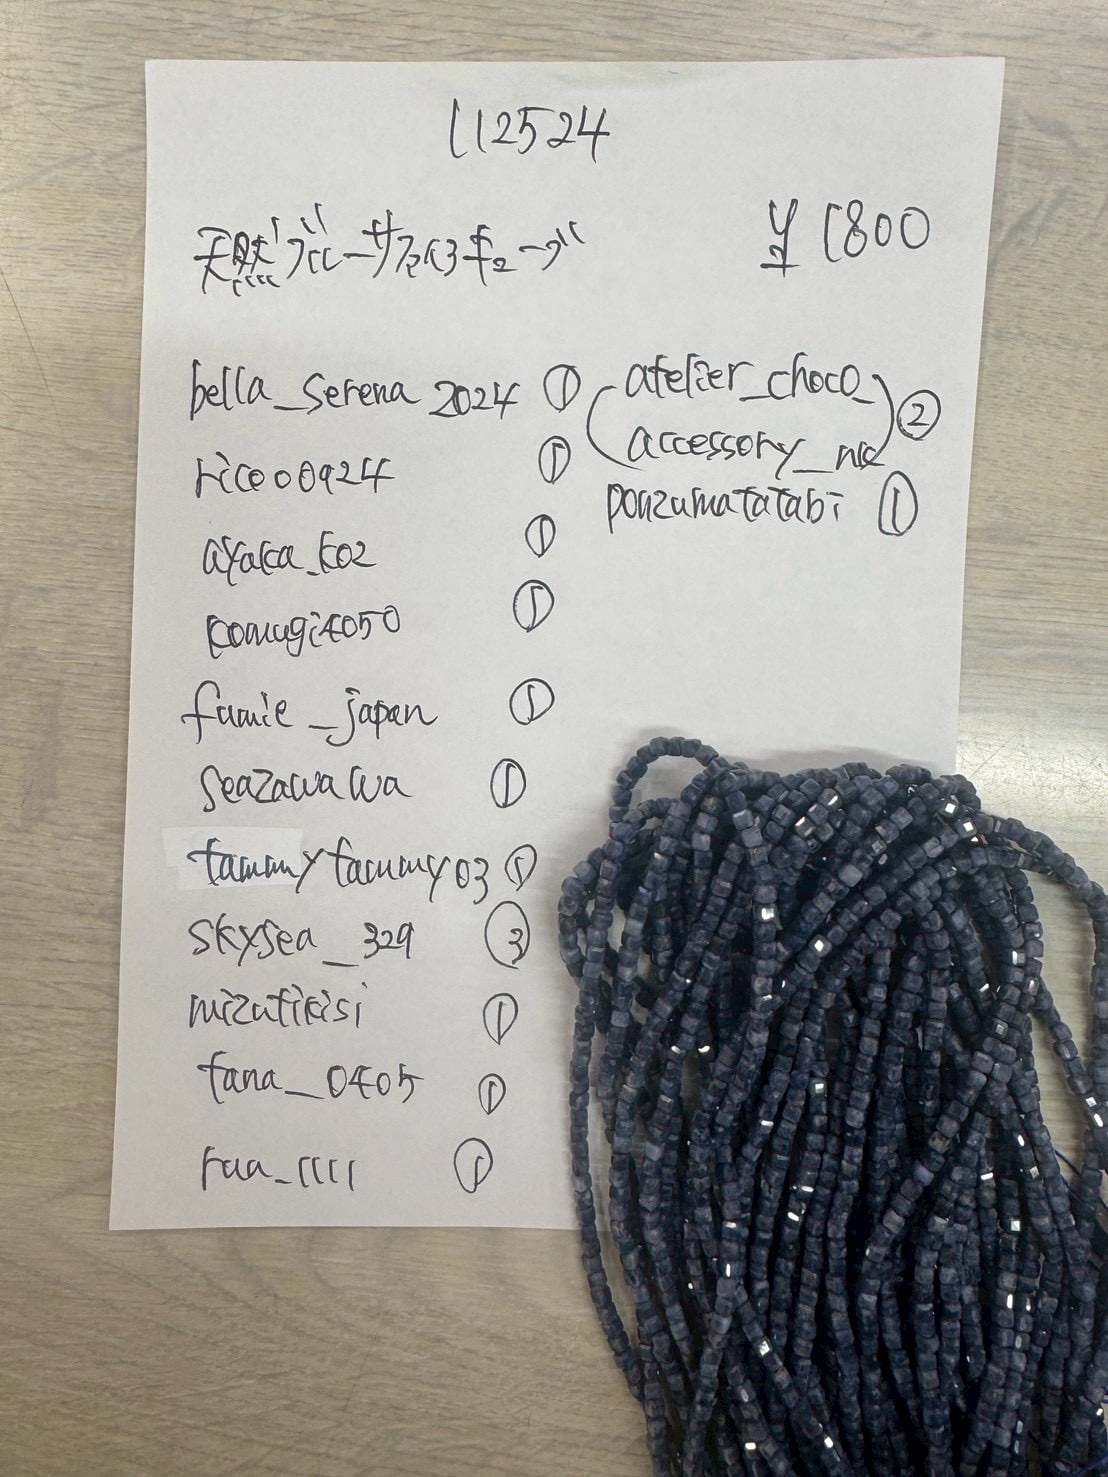 112524
天然ブルーサファイアキューブ ¥1800
bella_serena2024 ①
rico00924 ①
ayaka_k02 ①
komugi4050 ①
fumie_japan ①
seazawawa ①
tammytammy03 ①
skysea_329 ③
mizutikisi ①
tana_0405 ①
raa_1111 ①
(atelier_choco_
accessory_nk) ②
ponzumatatabi ①